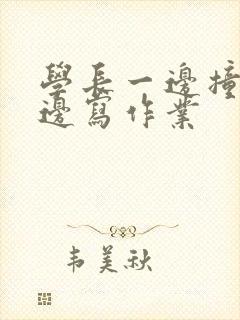 學長一邊撞
邊寫作業
韦美秋